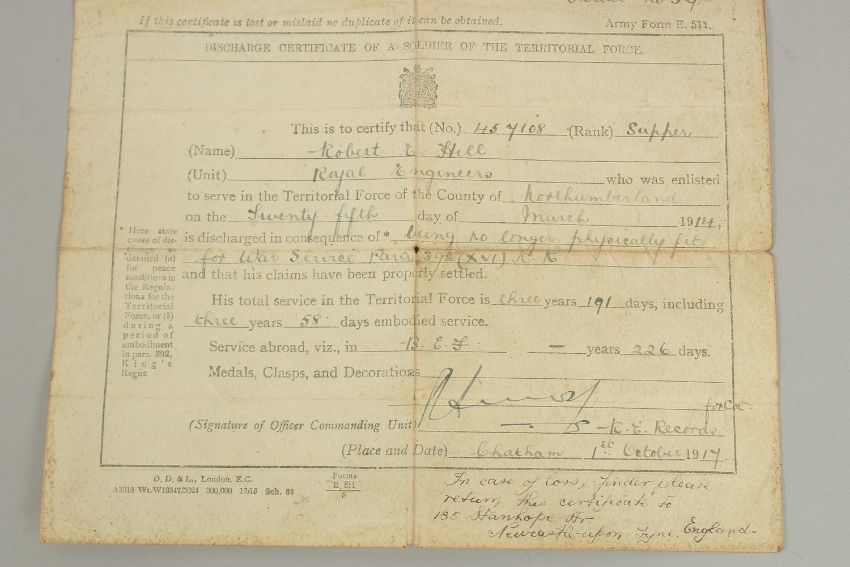 If this certificate is lost or mislaid no duplicate of it can be obtained. Army Form E. 511.
DISCHARGE CERTIFICATE OF A SOLDIER OF THE TERRITORIAL FORCE.
This is to certify that (No.) 457108 (Rank) Sapper
(Name) Robert E. Hill
(Unit) Royal Engineers who was enlisted
to serve in the Territorial Force of the County of Northumberland
on the Twenty fifth day of March 1914,
is discharged in consequence of * being no longer physically fit
for War Service Para. 392 (XVI) K. R
and that his claims have been properly settled.
* Here state
cause of dis-
charge as
detailed (a)
for peace
conditions in
the Regula-
tions for the
Territorial
Force, or (b)
during a
period of
embodiment
in para. 392,
King's
Regns.
His total service in the Territorial Force is three years 191 days, including
three years 58 days embodied service.
Service abroad, viz., in B. E. F. — years 226 days.
Medals, Clasps, and Decorations
for Col
(Signature of Officer Commanding Unit) R. E. Records
(Place and Date) Chatham 1st October 1917.
D. D. & L., London, E.C.
A3318 Wt. W13547/5024 200,000 12/15 Sch. 52
Forms
E. 511
5
In case of loss, finder please
return this certificate to
185 Stanhope Str.
Newcastle-upon-Tyne. England.